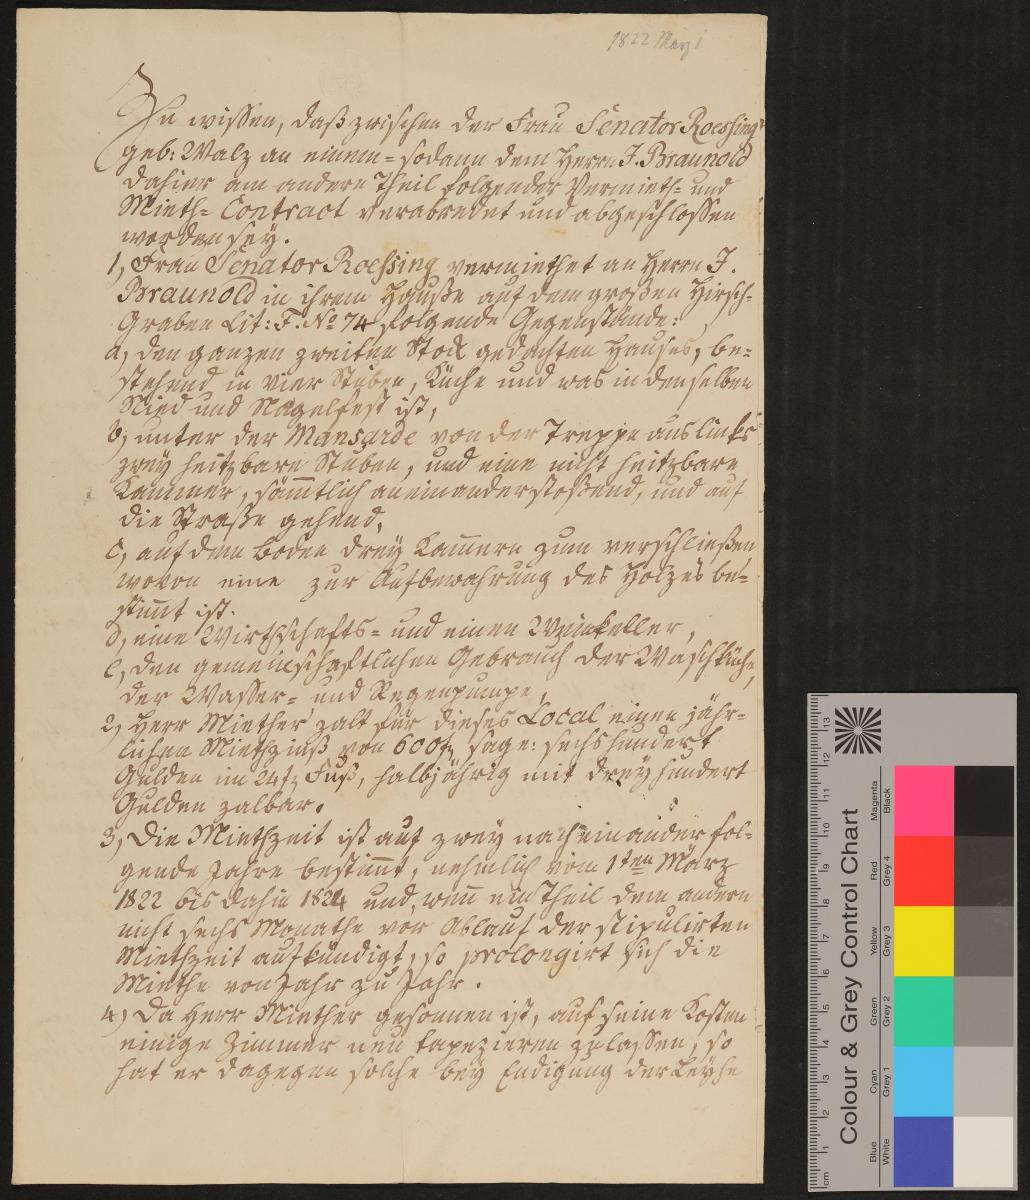 1822 März 1
Zu wissen, daß zwischen der Frau Senator Roessing
geb: Walz an einem = sodann dem Herrn J. Braunold
dahier am andern Theil folgender Vermieth= und
Mieth= Contract verabredet und abgeschlossen
worden sey.
1, Frau Senator Roessing vermiethet an Herrn J.
Braunold in ihrem Hauße auf dem großen Hirsch=
Graben Lit: F. No 74 folgende Gegenstände:
a, den ganzen zweiten Stock gedachten Hauses, be=
stehend in vier Stuben, Küche und was in denselben
Nied und Nagelfest ist,
b, unter der Mansarde von der Treppe aus links
zwey heitzbare Stuben, und eine nicht heitzbare
Kammer, sämtlich aneinanderstoßend, und auf
die Straße gehend.
c, auf dem Boden drey Kamern zum verschließen,
wovon eine zur Aufbewahrung des Holzes be=
stimt ist.
d, eine Wirthschafts= und einen Weinkeller,
e, den gemeinschaftlichen Gebrauch der Waschküche,
der Wasser= und Regenpumpe,
2, Herr Miether zalt für dieses Local einen jähr=
lichen Miethzinß von 600 fl, sage: sechshundert
Gulden im 24 fl Fuß, halbjährig mit dreyhundert
Gulden zalbar.
3, Die Miethzeit ist auf zwey nacheinander fol=
gende Jahre bestimt, nehmlich vom 1ten März
1822 bis dahin 1824 und, wenn ein Theil dem andern
nicht sechs Monathe vor Ablauf der stipulirten
Miethzeit aufkündigt, so prolongirt sich die
Miethe von Jahr zu Jahr.
4, Da Herr Miether gesonnen ist, auf seine Kosten
einige Zimmer neu tapezieren zu lassen, so
hat er dagegen solche bey Endigung der Leyhe